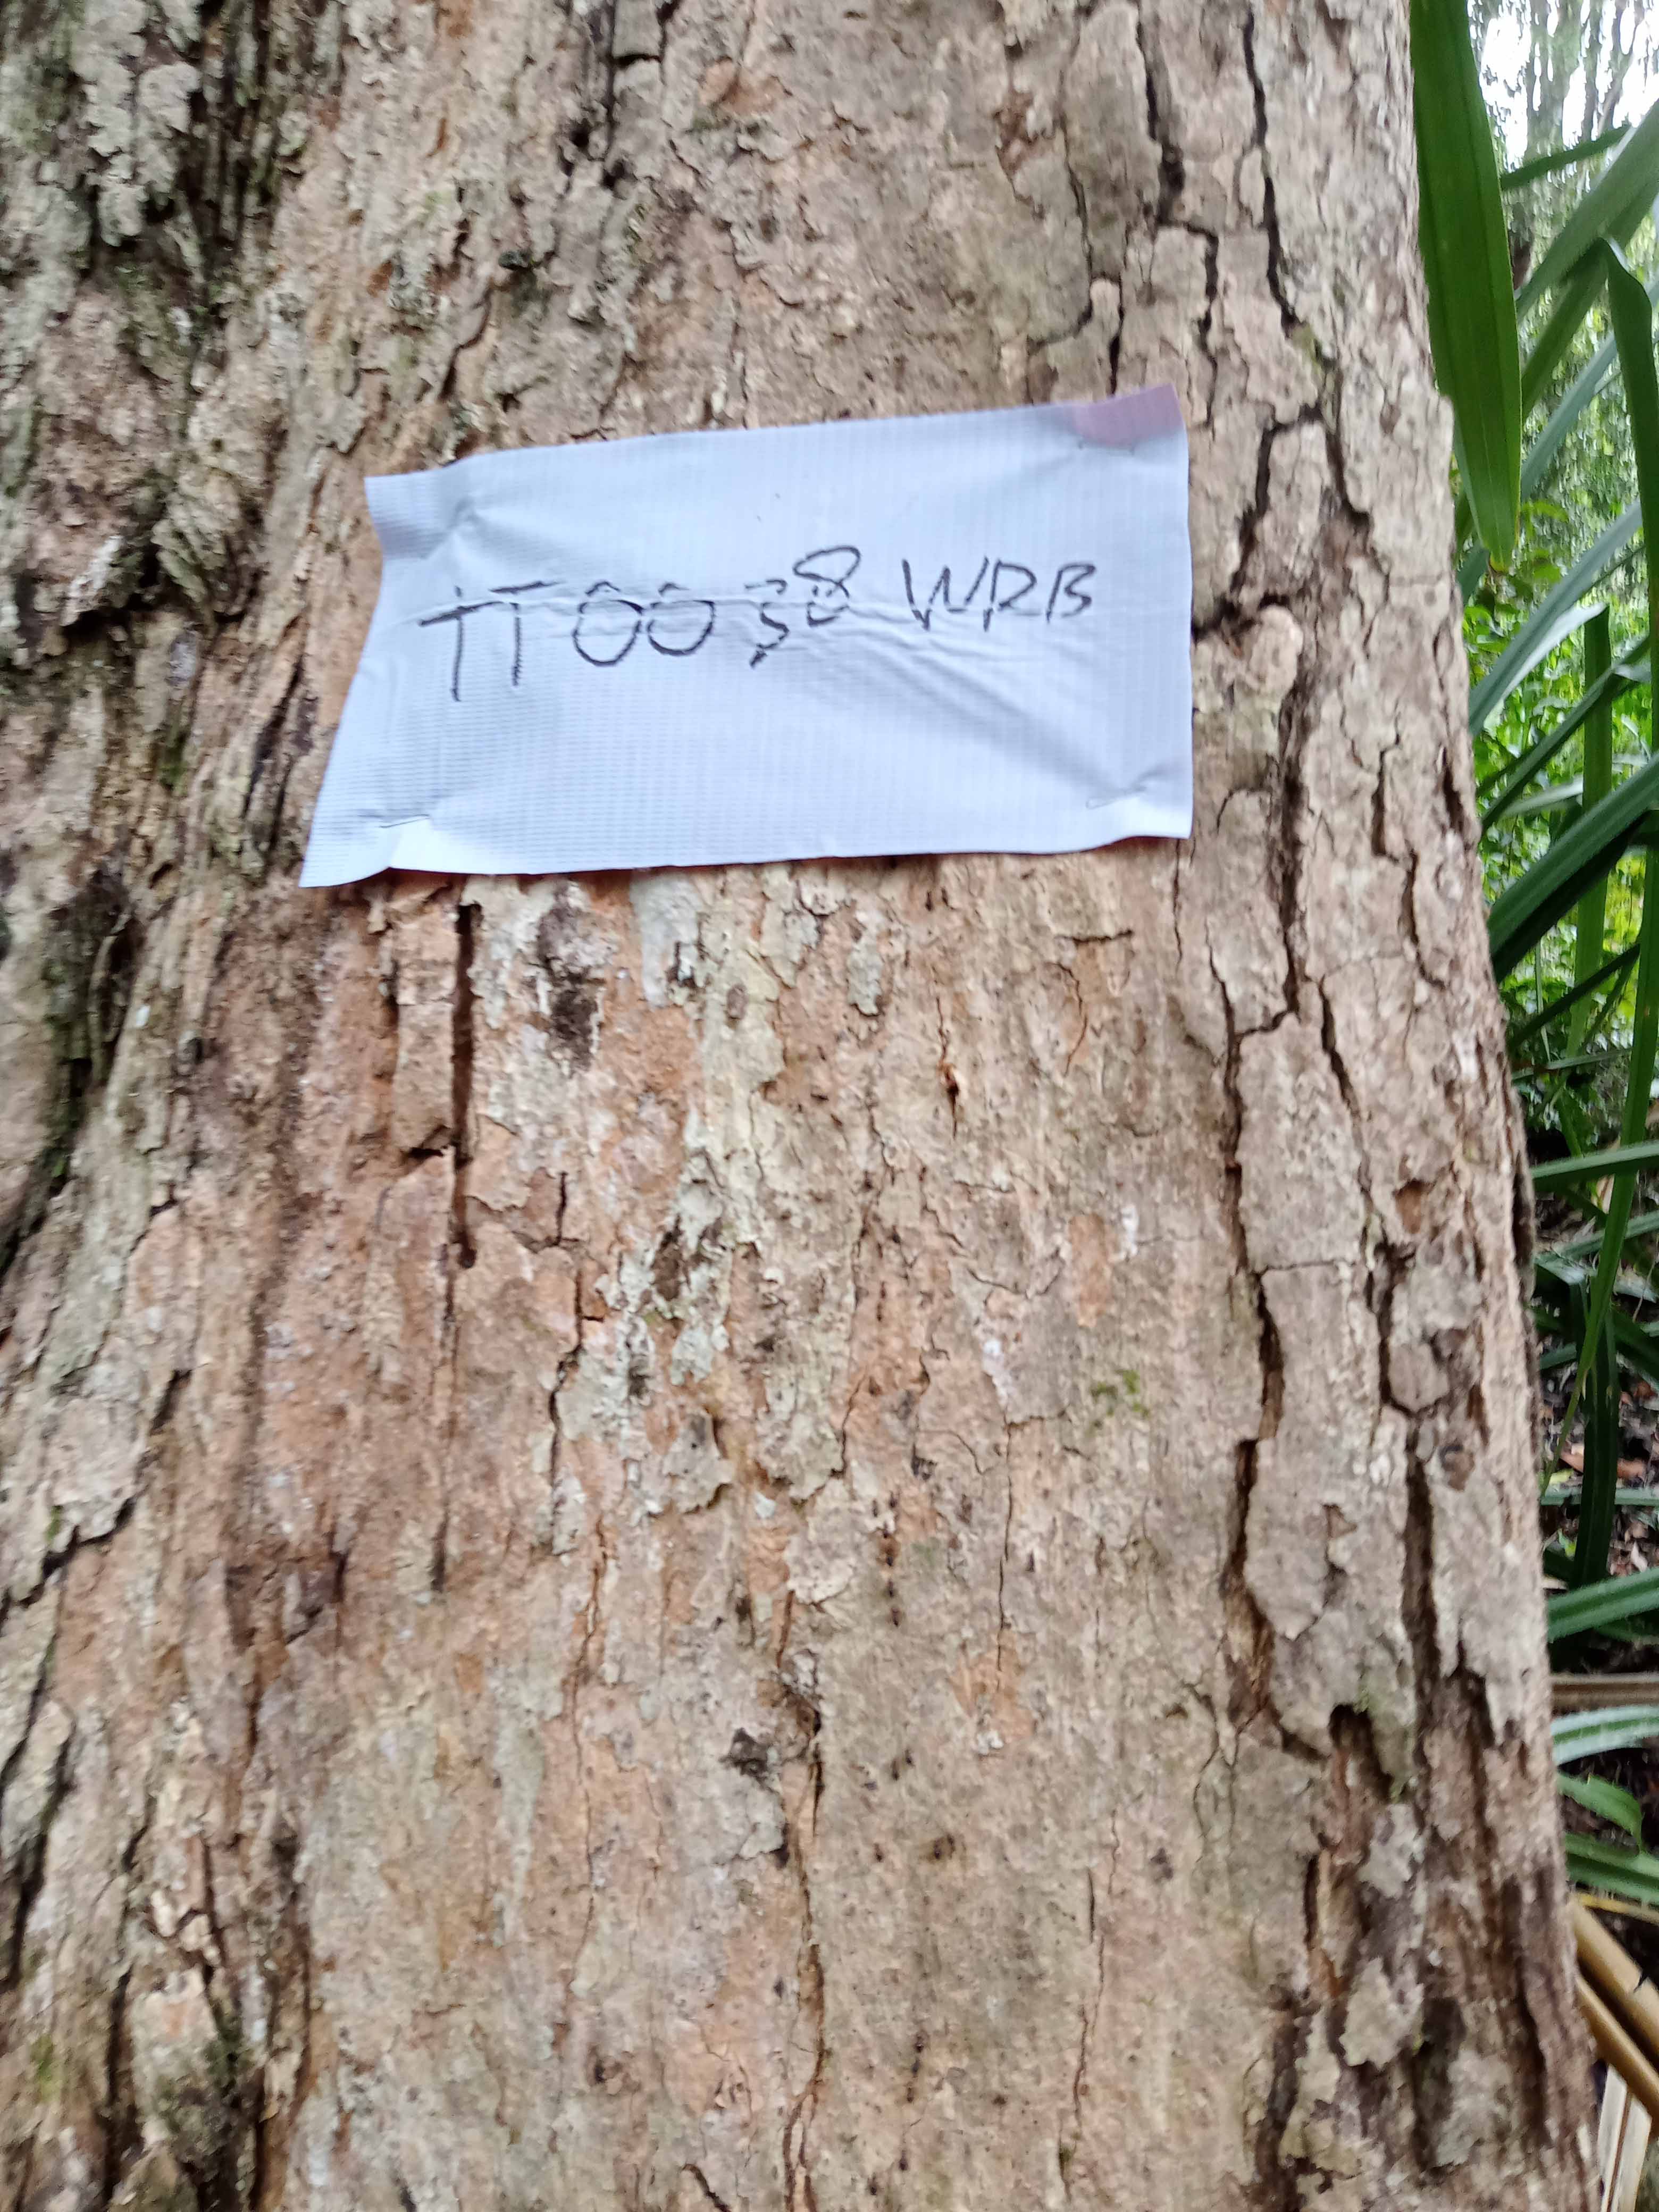 TT0038 WRB